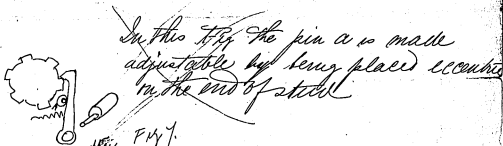 In this Fig the pin a is made
adjustable by being placed eccentric
on the end of stud
Fig 7.